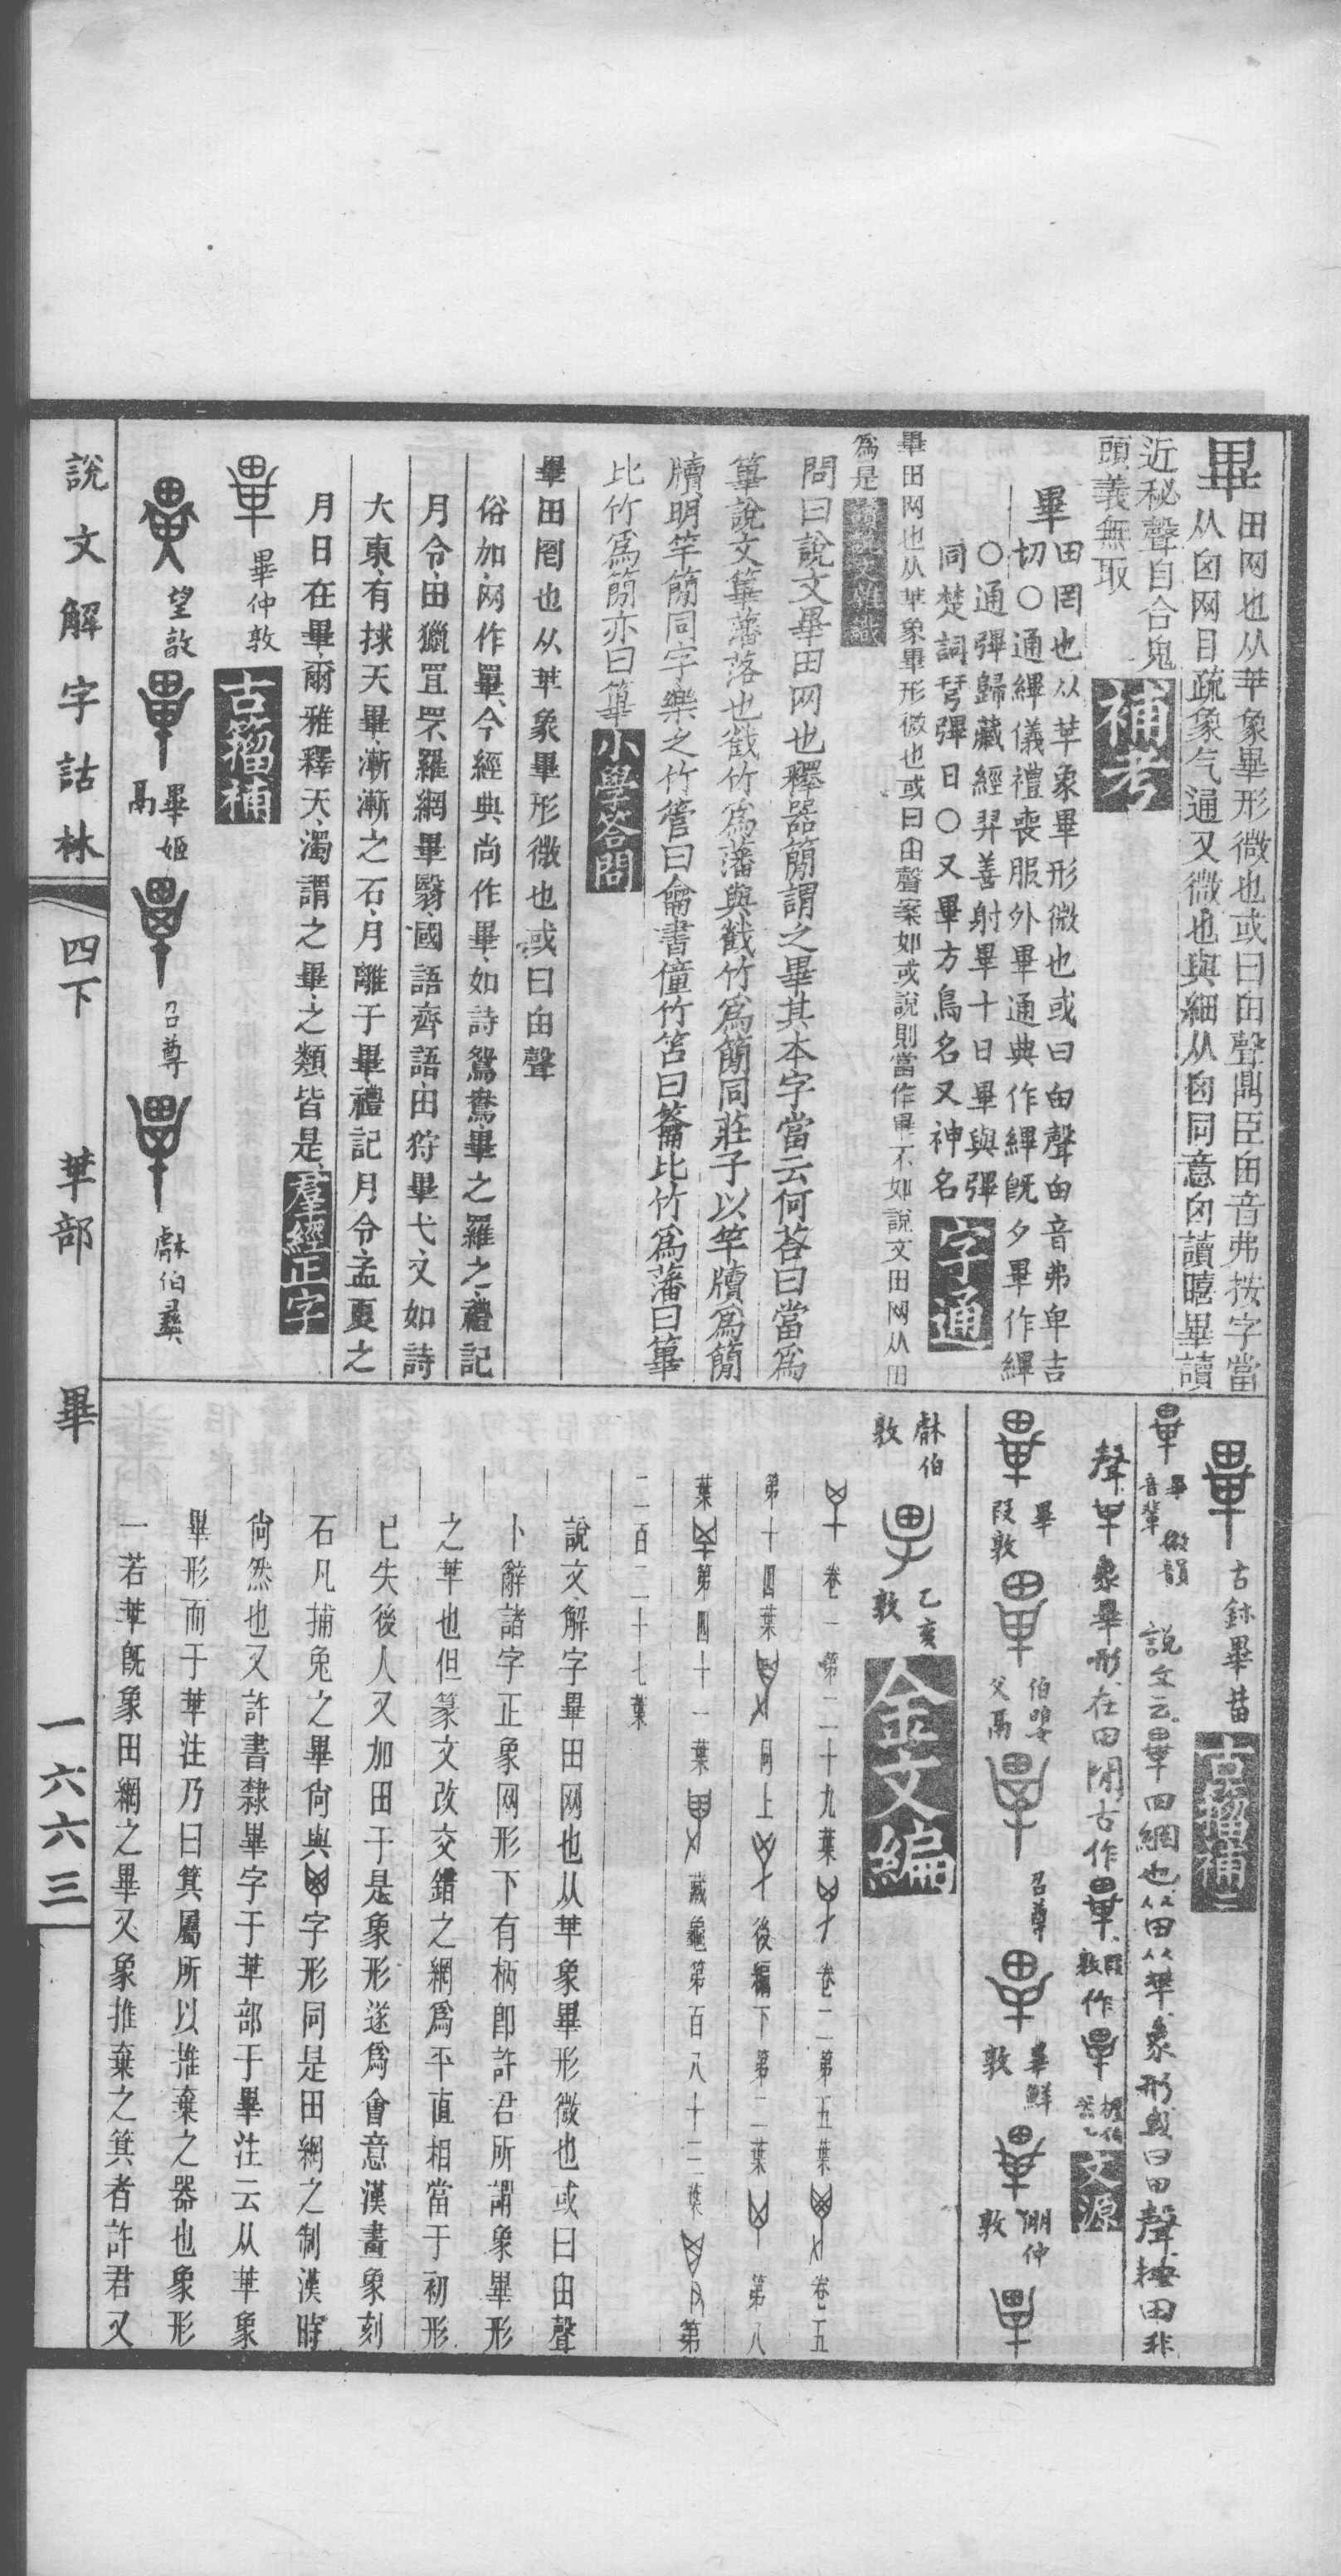 畢
田网也从𠦒象畢形微也或曰甶聲鼎臣甶音弗按字當
从囟网目疏象气通又微也與細从囟同意囟讀暿畢讀
近秘聲自合鬼
頭義無取
補考
畢
田罔也从𠦒象畢形微也或曰甶聲甶音弗卑吉
切○通縪儀禮喪服外畢通典作縪旣夕畢作縪
○通彈歸藏經羿善射畢十日畢與彈
同楚詞彈日○又畢方鳥名又神名
字通
畢田网也从𠦒象畢形微也或曰甶聲案如或說則當作不如說文田网从田
爲是
讀說文雜識
問曰說文畢田网也釋器簡謂之畢其本字當云何荅曰當爲
篳說文篳藩落也戳竹爲藩與戳竹爲簡同莊子以竿牘爲簡
牘明竿簡同字樂之竹管曰龠書僮竹笘曰籥比竹爲藩曰篳
比竹爲簡亦曰篳
小學答問
畢田罔也从𠦒象畢形微也或曰甶聲
俗加网作罼今經典尚作畢如詩鴛鴦畢之羅之禮記
月令田獵罝罘羅網畢翳國語齊語田狩畢弋文如詩
大東有捄天畢漸漸之石月離于畢禮記月令孟夏之
月日在畢爾雅釋天濁謂之畢之類皆是
羣經正字
畢仲敦
古籀補
望敦
畢姬鬲
召尊
龢伯彝
古鉨畢𦰩
古籀補二
說文云畢田網也从田从𠦒象形或曰田聲按田非
聲 象畢形在田閒古作畢段敦作
文源
畢段敦
伯 父鬲
召尊
畢鮮敦
倗仲敦
龢伯敦
乙亥敦
金文編
卷一第二十九葉 卷二第五葉 卷五
第十四葉 同上 後編下第二葉 第八
葉 第四十一葉 藏龜第百八十二葉 第
二百二十七葉
說文解字畢田网也从𠦒象畢形微也或曰甶聲
卜辭諸字正象网形下有柄卽許君所謂象畢形
之𠦒也但篆文改交錯之網爲平直相當于初形
已失後人又加田于是象形遂爲會意漢畫象刻
石凡捕兔之畢尙與 字形同是田網之制漢時
尙然也又許書隸畢字于𠦒部于畢注云从𠦒象
畢形而于𠦒注乃曰箕屬所以推棄之器也象形
一若𠦒旣象田網之畢又象推棄之箕者許君又
說文解字詁林
四下
𠦒部
畢
一六六三